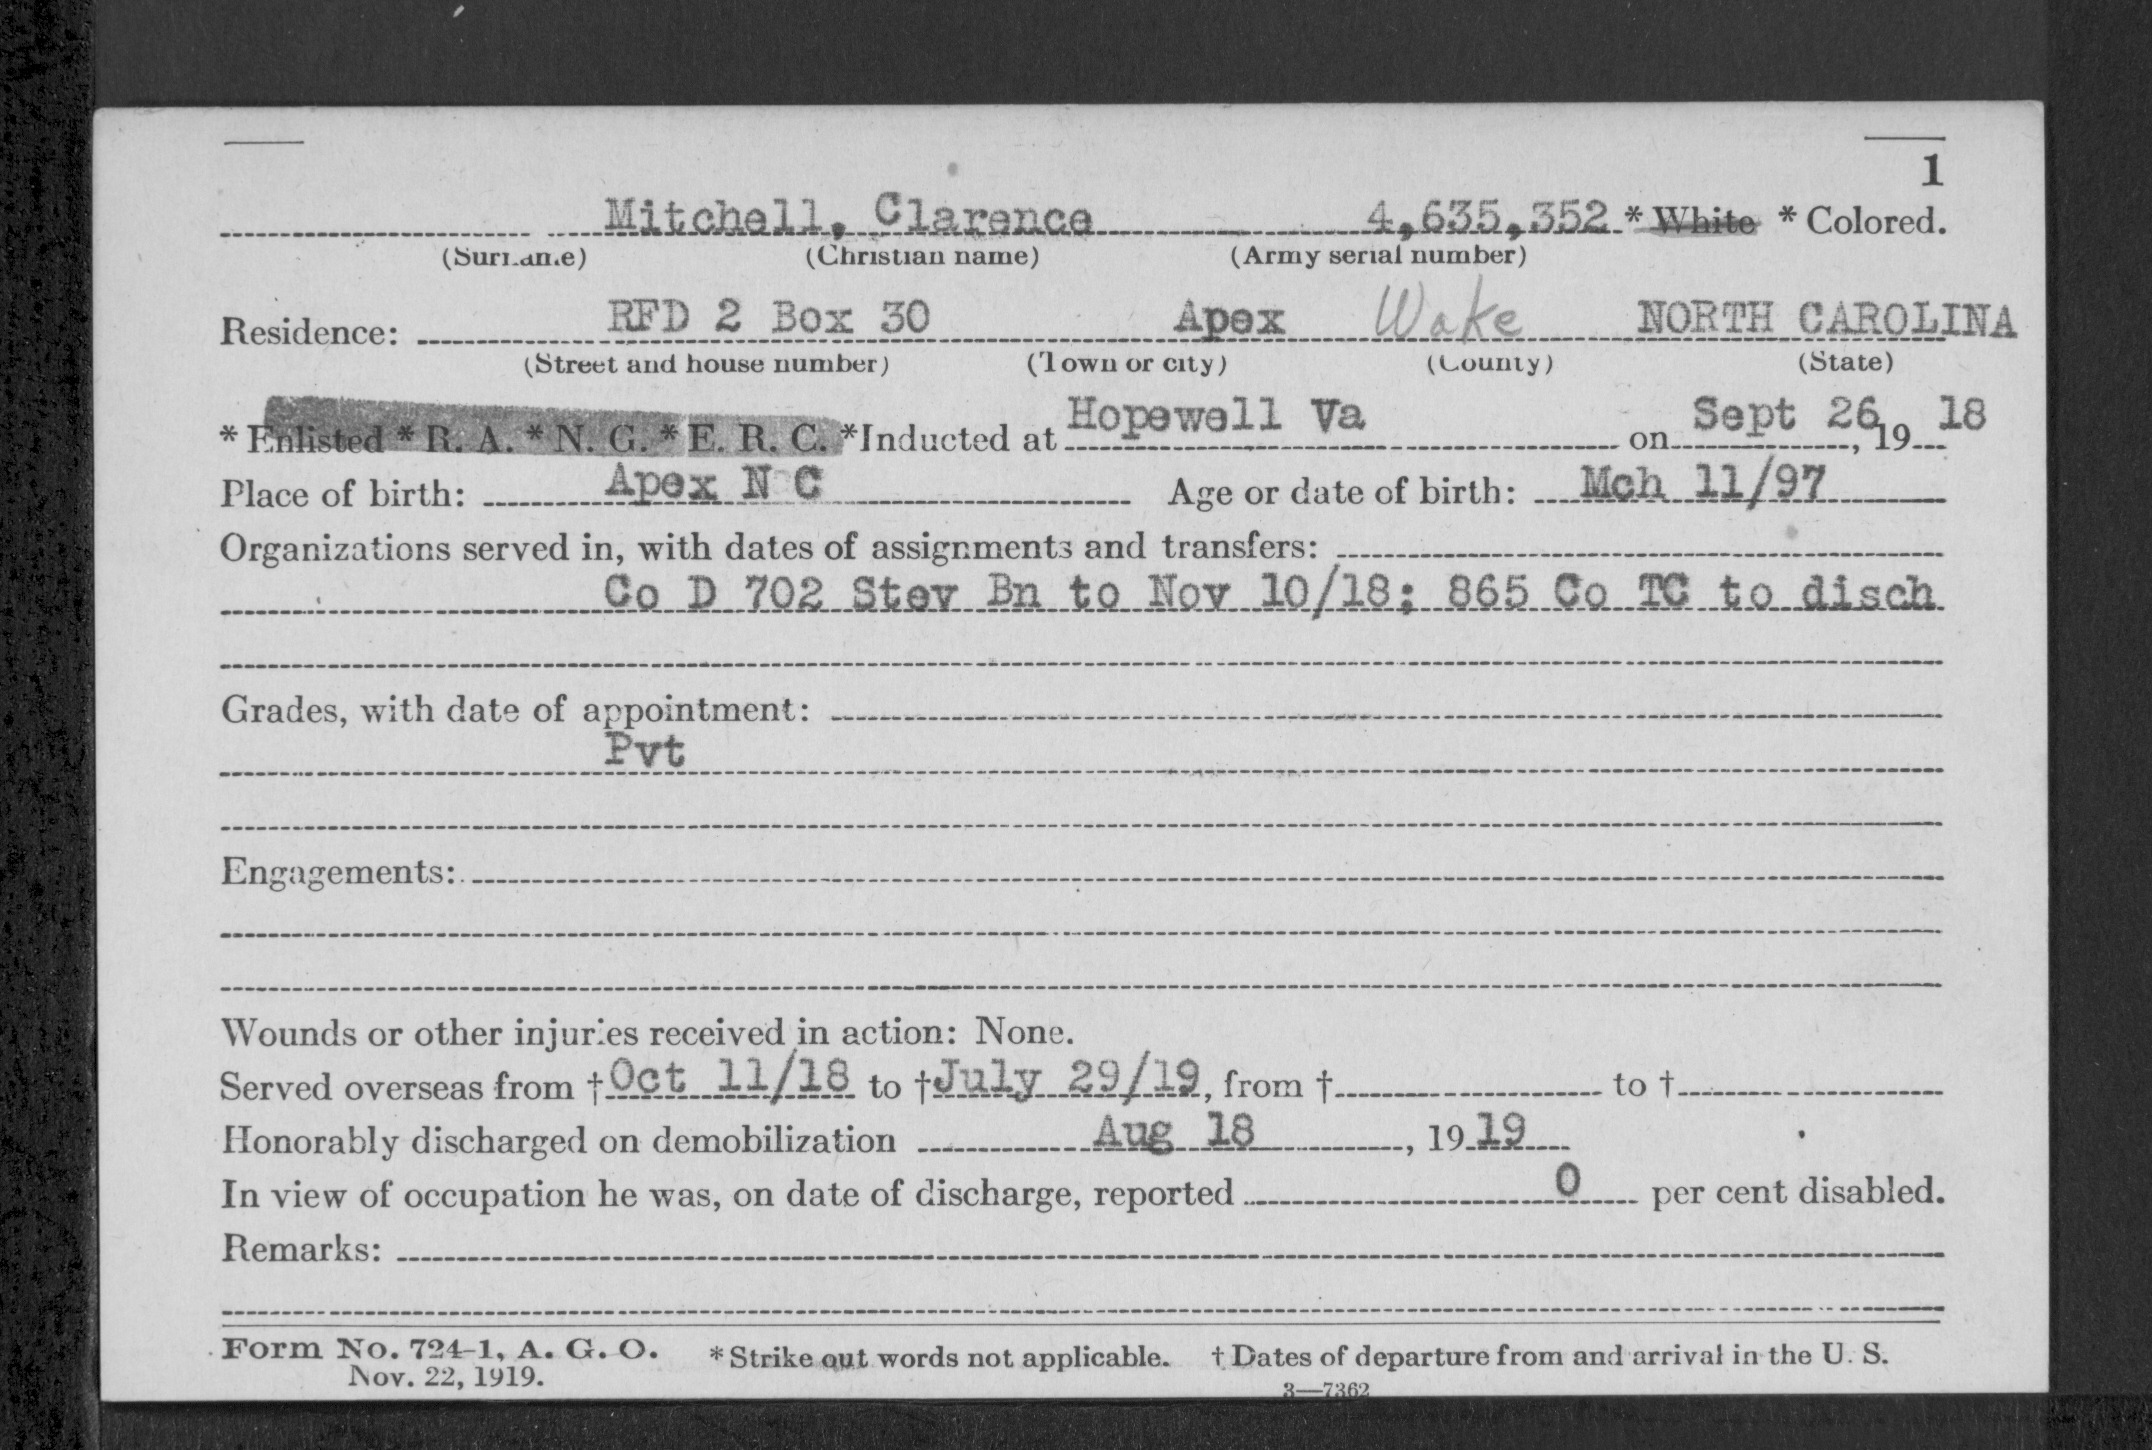 1
Mitchell, Clarence 4,635,352 * White * Colored.
(Surname) (Christian name) (Army serial number)
Residence: RFD 2 Box 30 Apex Wake NORTH CAROLINA
(Street and house number) (Town or city) (County) (State)
* Enlisted * R. A. * N. G. * E. R. C. *Inducted at Hopewell Va on Sept 26, 19 18
Place of birth: Apex N C Age or date of birth: Mch 11/97
Organizations served in, with dates of assignments and transfers:
Co D 702 Stev Bn to Nov 10/18; 865 Co TC to disch
Grades, with date of appointment:
Pvt
Engagements:
Wounds or other injuries received in action: None.
Served overseas from † Oct 11/18 to † July 29/19, from † to †
Honorably discharged on demobilization Aug 18, 19 19
In view of occupation he was, on date of discharge, reported 0 per cent disabled.
Remarks:
Form No. 724-1, A. G. O. * Strike out words not applicable. † Dates of departure from and arrival in the U. S.
Nov. 22, 1919.
3—7362